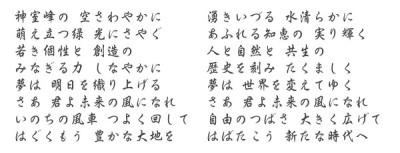 神室峰の 空さわやかに
萌え立つ緑 光にさやぐ
若き個性と 創造の
みなぎる力 しなやかに
夢は 明日を織り上げる
さあ 君よ未来の風になれ
いのちの風車 つよく回して
はぐくもう 豊かな大地を
湧きいづる 水清らかに
あふれる知恵の 実り輝く
人と自然と 共生の
歴史を刻み たくましく
夢は 世界を変えてゆく
さあ 君よ未来の風になれ
自由のつばさ 大きく広げて
はばたこう 新たな時代へ